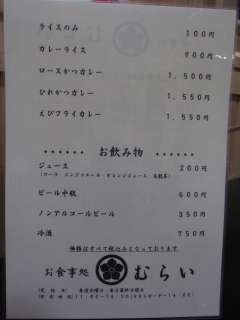 ライスのみ 100円
カレーライス 700円
ロースかつカレー 1,500円
ひれかつカレー 1,550円
えびフライカレー 1,550円
…… お飲み物 ……
ジュース 200円
(コーラ・ジンジャエール・オレンジジュース・烏龍茶)
ビール中瓶 600円
ノンアルコールビール 350円
冷酒 750円
価格はすべて税込みとなっております
お食事処 むらい